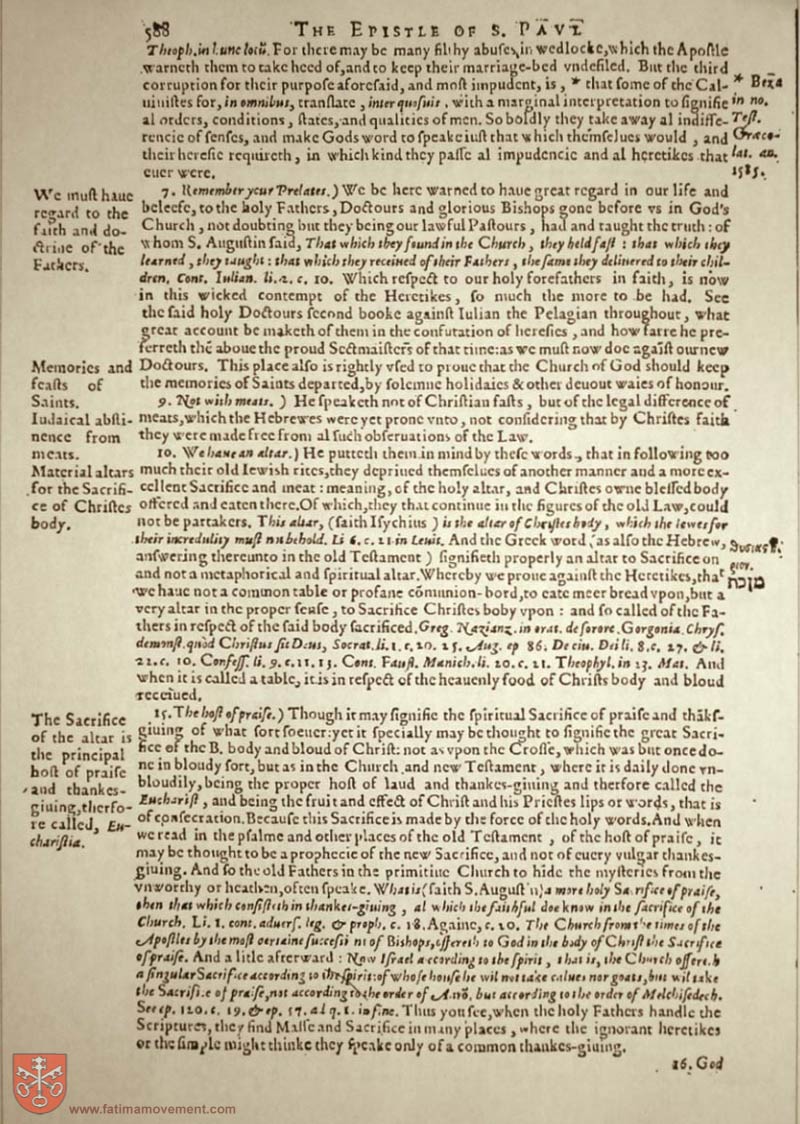 588 THE EPISTLE OF S. PAVL
Theoph. in hunc locū. For there may be many filthy abuses in wedlocke, which the Apostle
warneth them to take heed of, and to keep their marriage-bed vndefiled. But the third
corruption for their purpose aforesaid, and most impudent, is, * that some of the Cal-
uinistes for, in omnibus, translate, inter quosuis, with a marginal interpretation to signifie
al orders, conditions, states, and qualities of men. So boldly they take away al indiffe-
rencie of senses, and make Gods word to speake iust that which themselues would, and
their heresie requireth, in which kind they passe al impudencie and al heretikes that
euer were.
* Beza
in no.
Test.
Græco-
lat. an.
1585.
We must haue
regard to the
faith and do-
ctrine of the
Fathers.
7. Remember your Prelates.) We be here warned to haue great regard in our life and
beleefe, to the holy Fathers, Doctours and glorious Bishops gone before vs in God's
Church, not doubting but they being our lawful Pastours, had and taught the truth: of
whom S. Augustin said, That which they found in the Church, they held fast: that which they
learned, they taught: that which they receiued of their Fathers, the same they deliuered to their chil-
dren. Cont. Iulian. li. 2. c. 10. Which respect to our holy forefathers in faith, is now
in this wicked contempt of the Heretikes, so much the more to be had. See
the said holy Doctours second booke against Iulian the Pelagian throughout, what
great account he maketh of them in the confutation of heresies, and how farre he pre-
ferreth thē aboue the proud Sectmaisters of that time: as we must now doe agaīst our new
Doctours. This place also is rightly vsed to proue that the Church of God should keep
the memories of Saints departed, by solemne holidaies & other deuout waies of honour.
Memories and
feasts of
Saints.
9. Not with meats.) He speaketh not of Christian fasts, but of the legal difference of
meats, which the Hebrewes were yet prone vnto, not considering that by Christes faith
they were made free from al such obseruations of the Law.
Iudaical absti-
nence from
meats.
10. We haue an altar.) He putteth them in mind by these words, that in following too
much their old Iewish rites, they depriued themselues of another manner and a more ex-
cellent Sacrifice and meat: meaning, of the holy altar, and Christes owne blessed body
offered and eaten there. Of which, they that continue in the figures of the old Law, could
not be partakers. This altar, (saith Isychius) is the altar of Christes body, which the Iewes for
their incredulity must not behold. Li 6. c. 21 in Leuit. And the Greek word (as also the Hebrew,
answering thereunto in the old Testament) signifieth properly an altar to Sacrifice on
and not a metaphorical and spiritual altar. Whereby we proue against the Heretikes, that
we haue not a common table or profane cōmunion-bord, to eate meer bread vpon, but a
very altar in the proper sense, to Sacrifice Christes boby vpon: and so called of the Fa-
thers in respect of the said body sacrificed. Greg. Nazianz. in orat. de sorore Gorgonia. Chrys.
demonst. quòd Christus sit Deus, Socrat. li. 1. c. 20. 25. Aug. ep 86. De ciu. Dei li. 8. c. 27. & li.
22. c. 10. Confess. li. 9. c. 11. 13. Cont. Faust. Manich. li. 20. c. 21. Theophyl. in 23. Mat. And
when it is called a table, it is in respect of the heauenly food of Christs body and bloud
receiued.
Material altars
for the Sacrifi-
ce of Christes
body.
θυσιαστή-
ριον.
מזבח
15. The host of praise.) Though it may signifie the spiritual Sacrifice of praise and thāks-
giuing of what sort soeuer: yet it specially may be thought to signifie the great Sacri-
fice of the B. body and bloud of Christ: not as vpon the Crosse, which was but once do-
ne in bloudy sort, but as in the Church and new Testament, where it is daily done vn-
bloudily, being the proper host of laud and thankes-giuing and therfore called the
Eucharist, and being the fruit and effect of Christ and his Priestes lips or words, that is
of consecration. Because this Sacrifice is made by the force of the holy words. And when
we read in the psalme and other places of the old Testament, of the host of praise, it
may be thought to be a prophecie of the new Sacrifice, and not of euery vulgar thankes-
giuing. And so the old Fathers in the primitiue Church to hide the mysteries from the
vnworthy or heathen, often speake. What is (saith S. August'n) a more holy Sacrifice of praise,
then that which consisteth in thankes-giuing, al which the faithful doe know in the sacrifice of the
Church. Li. 1. cont. aduers. leg. & proph. c. 18. Againe, c. 20. The Church from the times of the
Apostles by the most certaine successiōns of Bishops, offereth to God in the body of Christ the Sacrifice
of praise. And a litle afterward: Now Israel according to the spirit, that is, the Church offereth
a singular Sacrifice according to the spirit: of whose house he wil not take calues nor goats, but wil take
the Sacrifice of praise, not according to the order of Aarō, but according to the order of Melchisedech.
See ep. 120. c. 19. & ep. 57. al q. 1. in fine. Thus you see, when the holy Fathers handle the
Scriptures, they find Masse and Sacrifice in many places, where the ignorant heretikes
or the simple might thinke they speake only of a common thankes-giuing.
The Sacrifice
of the altar is
the principal
host of praise
and thankes-
giuing, therfo-
re called, Eu-
charistia.
16. God
www.fatimamovement.com